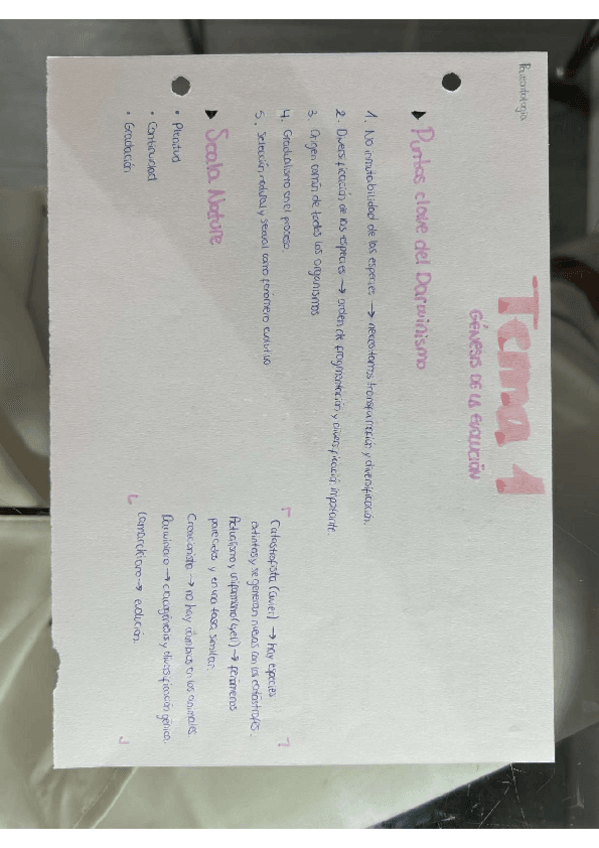 Paleontología
Tema 1
GÉNESIS DE LA EVOLUCIÓN
Puntos clave del Darwinismo
1. No inmutabilidad de las especies → necesitamos transformación y diversificación.
2. Diversificación de las especies → orden de fragmentación y diversificación importante.
3. Origen común de todos los organismos
4. Gradualismo en el proceso.
5. Selección natural y sexual como fenómeno evolutivo
Scala Nature
• Plenitud
• Continuidad
• Gradación
Catastrofista (Cuvier) → hay especies
extintas y se generan nuevas con las catástrofes.
Actualismo y uniformismo (Lyell) → fenómenos
parecidos y en una tasa similar.
Creacionista → no hay cambios en los animales.
Darwiniano → cladogénesis y diversificación génica.
Lamarckiano → evolución.